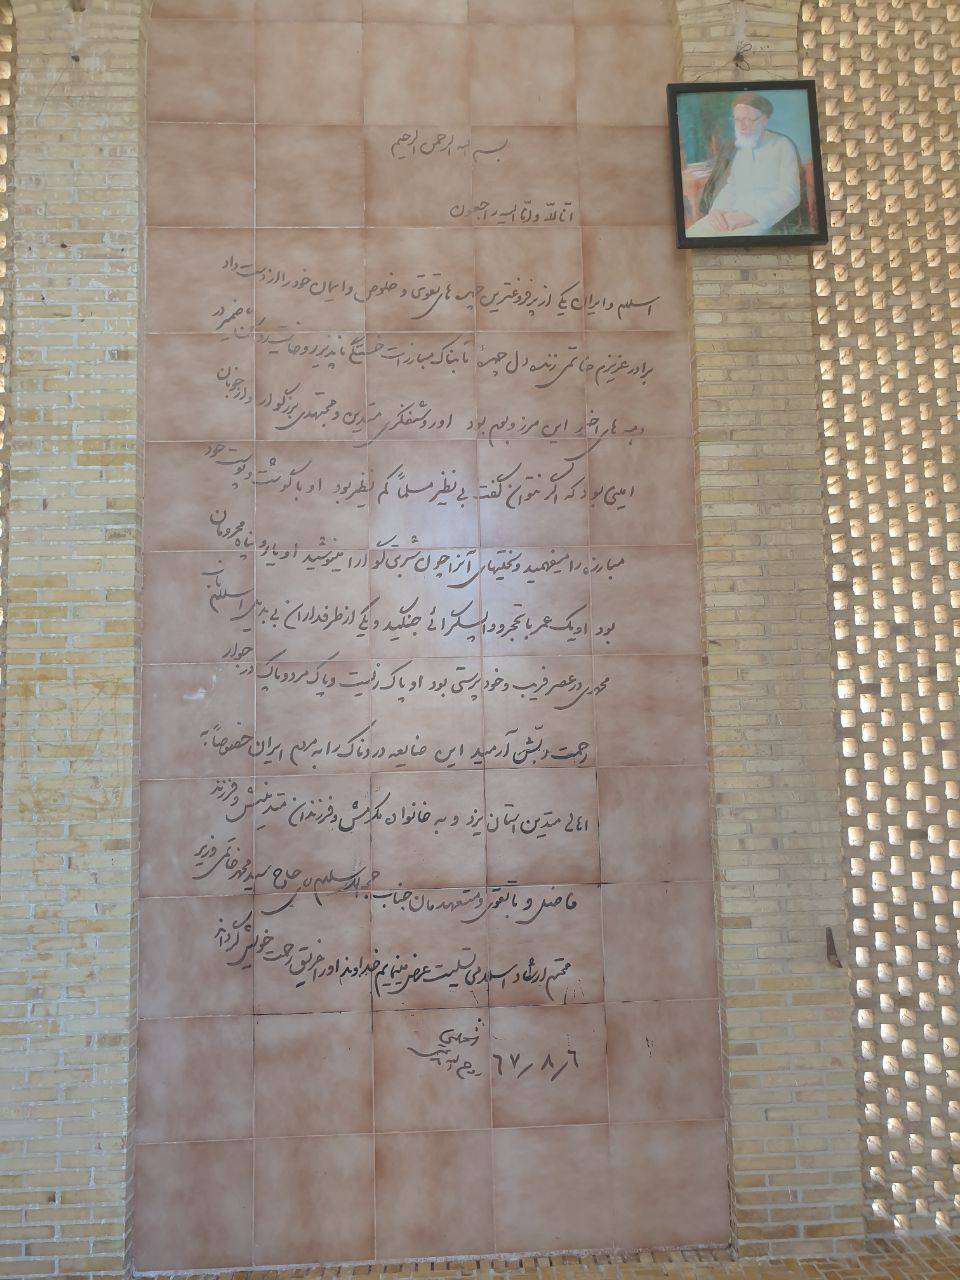 بسم الله الرحمن الرحیم
انا لله و انا الیه راجعون
اسلام و ایران یکی از پرفروغترین چهره های تقوی و خلوص و ایمان خود را از دست داد
برادر عزیزم خاتمی زنده دل چهرهٔ تابناک مبارزات خستگی ناپذیر روحانیت و در
دهه های اخیر این مرز و بوم بود او روشنفکری متدین و مجتهدی بزرگوار و از خوبان
امینی بود که اگر نتوان گفت بی نظیر مسلماً کم نظیر بود او با گوشت و پوست خود
مبارزه را میفهمید و سختیهای آنرا چون شربتی گوارا مینوشید او یار و پناه محرومان
بود او یک عمر با تحجر و واپسگرائی جنگید و یکی از طرفداران بی بدیل اسلام ناب
محمدی در عصر فریب و خودپرستی بود او پاک زیست و پاک مرد و پاک در جوار
رحمت ربّش آرمید این ضایعه دردناک را به مردم ایران خصوصاً به
اهالی متدین استان یزد و به خانواده مکرمش و فرزندان متدینش و فرزند
فاضل و باتقوی و متعهدمان جناب حجةالاسلام حاج سید محمد خاتمی وزیر
محترم ارشاد اسلامی تسلیت عرض مینمایم خداوند او را غریق رحمت خویش گرداند
۶۷/۸/۶
روح الله الموسوی الخمینی